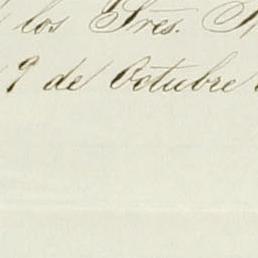 los Sres.
9 de Octubre